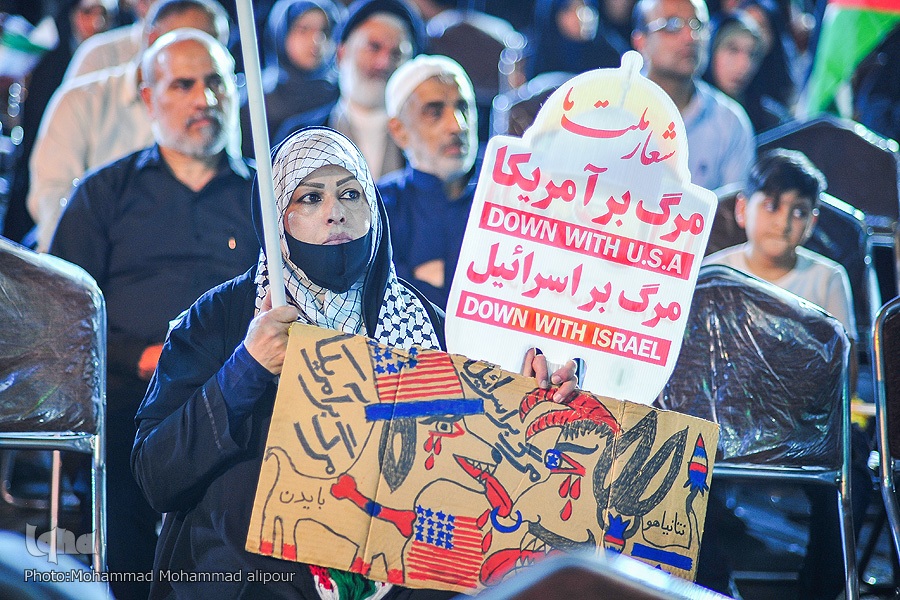 شعار ملت ما
مرگ بر آمریکا
DOWN WITH U.S.A
مرگ بر اسرائیل
DOWN WITH ISRAEL
مرگ بر آمریکا
مرگ بر اسرائیل
بایدن
نتانیاهو
iqna
Photo:Mohammad Mohammad alipour